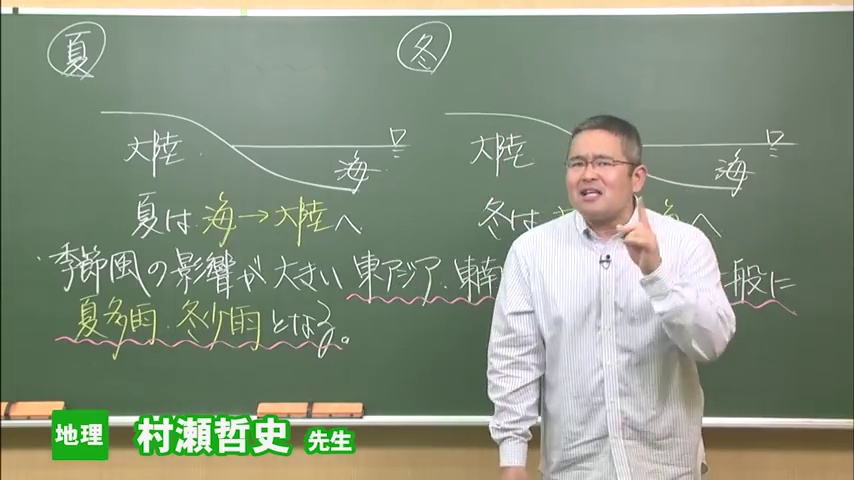 夏
冬
大陸
海
大陸
海
夏は 海→大陸へ
冬は
へ
・季節風の影響が大きい 東アジア・東南
一般に
夏多雨・冬少雨となる。
地理 村瀬哲史 先生